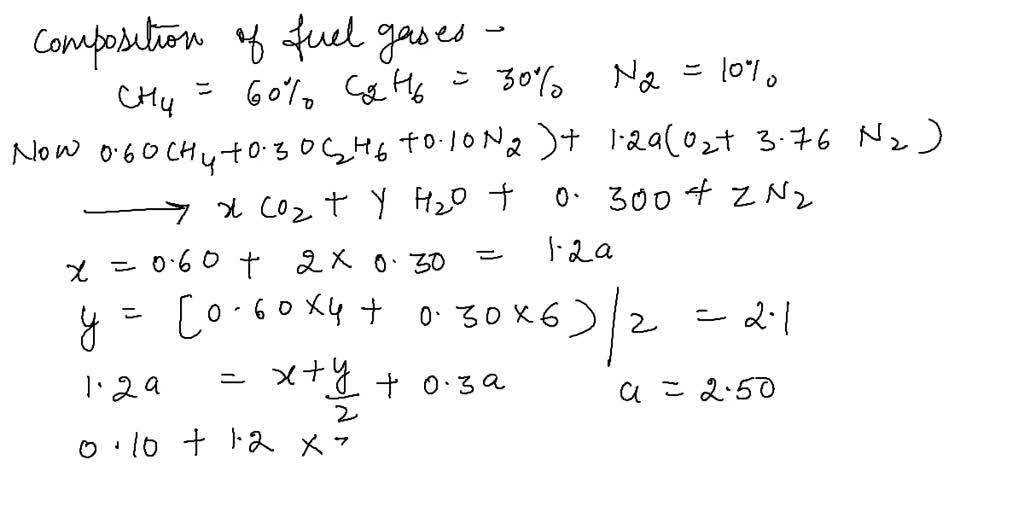 Composition of fuel gases →
CH4 = 60% C2H6 = 30% N2 = 10%
Now 0.60CH4+0.30C2H6+0.10N2)+ 1.2a(O2+ 3.76 N2)
⟶ x CO2 + Y H2O + 0. 300 + Z N2
x = 0.60 + 2 x 0.30 = 1.2a
y = [0.60x4 + 0.30x6)/2 = 2.1
1.2a = x+y/2 + 0.3a a = 2.50
0.10 + 1.2 x